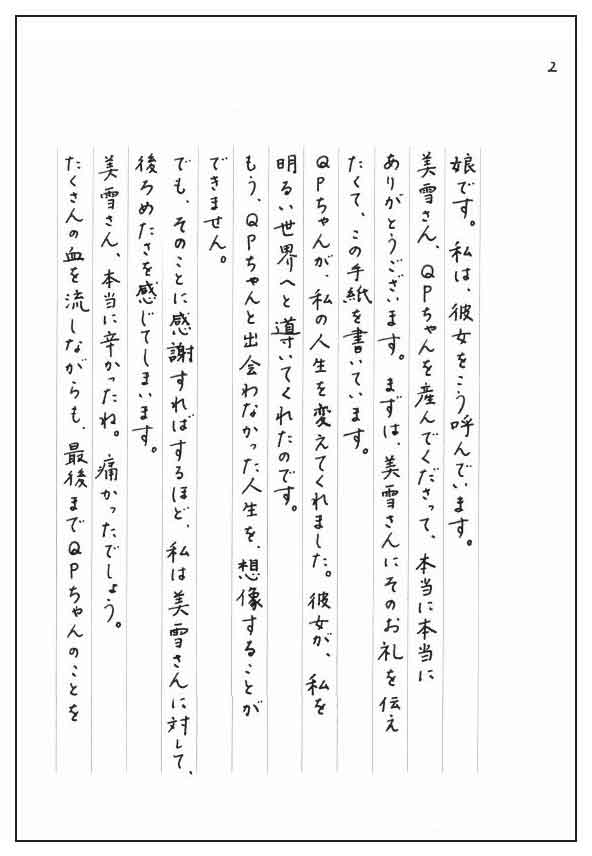 2
娘です。私は、彼女をこう呼んでいます。
美雪さん、QPちゃんを産んでくださって、本当に本当に
ありがとうございます。まずは、美雪さんにそのお礼を伝え
たくて、この手紙を書いています。
QPちゃんが、私の人生を変えてくれました。彼女が、私を
明るい世界へと導いてくれたのです。
もう、QPちゃんと出会わなかった人生を、想像することが
できません。
でも、そのことに感謝すればするほど、私は美雪さんに対して、
後ろめたさを感じてしまいます。
美雪さん、本当に辛かったね。痛かったでしょう。
たくさんの血を流しながらも、最後までQPちゃんのことを